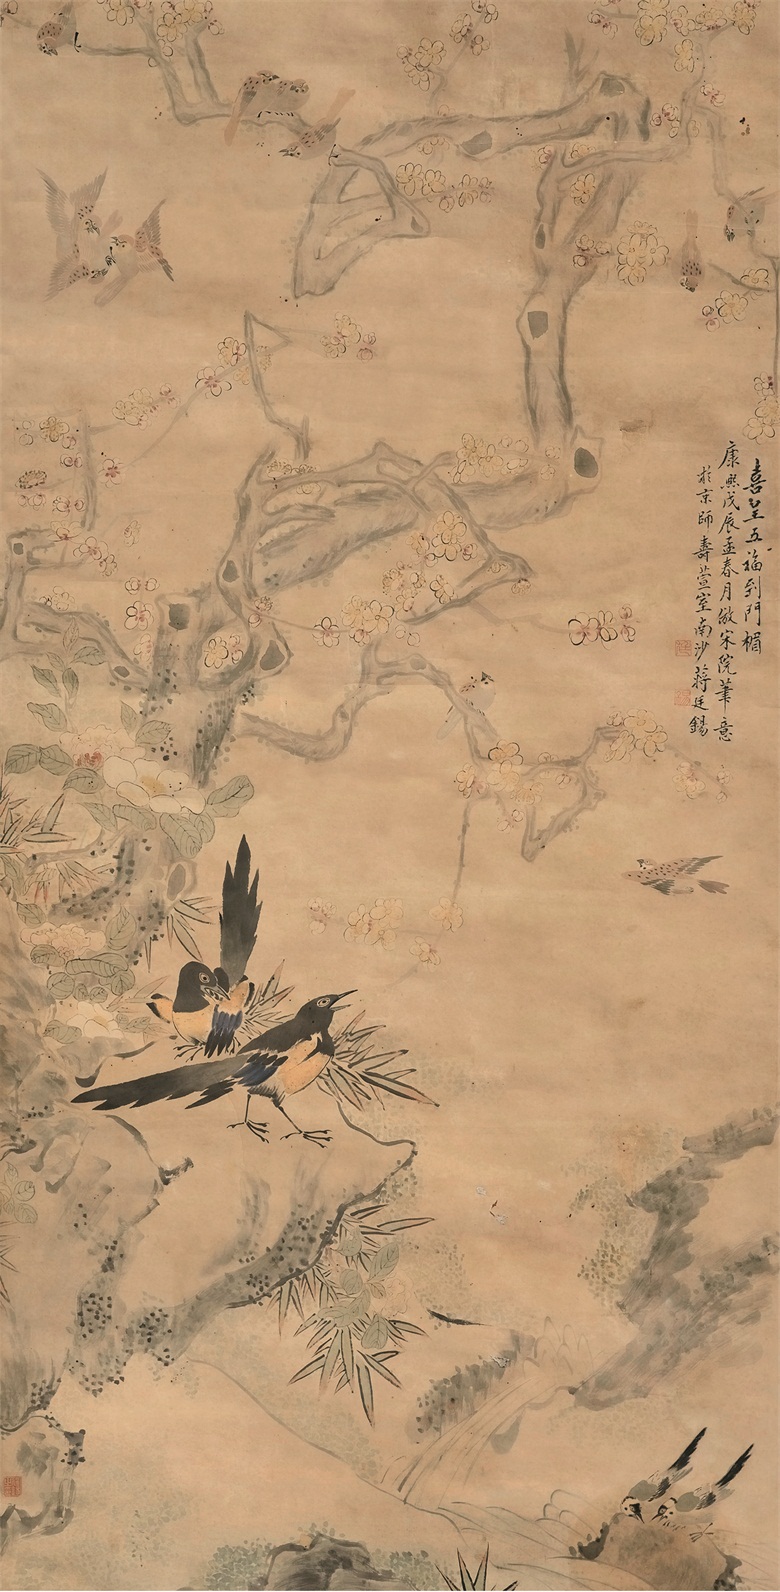 喜呈五福到門楣
康熙戊辰孟春月倣宋院筆意
於京師壽萱室南沙蔣廷錫